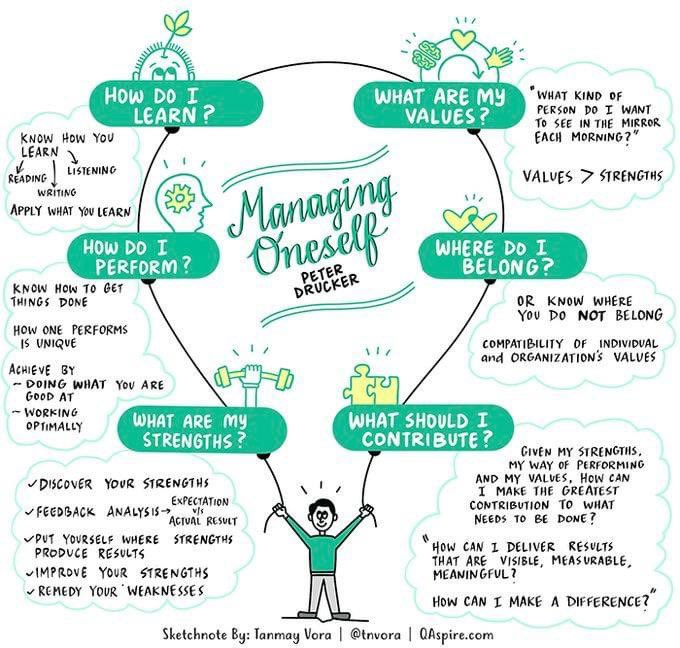 HOW DO I
LEARN?
KNOW HOW YOU
LEARN
READING
LISTENING
WRITING
APPLY WHAT YOU LEARN
WHAT ARE MY
VALUES?
"WHAT KIND OF
PERSON DO I WANT
TO SEE IN THE MIRROR
EACH MORNING?"
VALUES > STRENGTHS
Managing
Oneself
PETER
DRUCKER
HOW DO I
PERFORM?
KNOW HOW TO GET
THINGS DONE
HOW ONE PERFORMS
IS UNIQUE
ACHIEVE BY
- DOING WHAT YOU ARE
GOOD AT
- WORKING
OPTIMALLY
WHERE DO I
BELONG?
OR KNOW WHERE
YOU DO NOT BELONG
COMPATIBILITY OF INDIVIDUAL
and ORGANIZATION'S VALUES
WHAT ARE MY
STRENGTHS?
✓ DISCOVER YOUR STRENGTHS
✓ FEEDBACK ANALYSIS → EXPECTATION
v/s
ACTUAL RESULT
✓ PUT YOURSELF WHERE STRENGTHS
PRODUCE RESULTS
✓ IMPROVE YOUR STRENGTHS
✓ REMEDY YOUR WEAKNESSES
WHAT SHOULD I
CONTRIBUTE?
GIVEN MY STRENGTHS,
MY WAY OF PERFORMING
AND MY VALUES, HOW CAN
I MAKE THE GREATEST
CONTRIBUTION TO WHAT
NEEDS TO BE DONE?
"HOW CAN I DELIVER RESULTS
THAT ARE VISIBLE, MEASURABLE,
MEANINGFUL?
HOW CAN I MAKE A DIFFERENCE?"
Sketchnote By: Tanmay Vora | @tnvora | QAspire.com